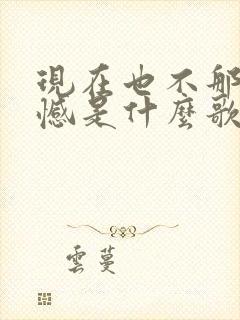 現在也不那
憾是什麼歌
雲蔓